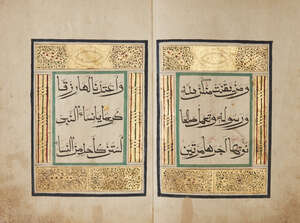 ومن يقنت منكن لله
ورسوله وتعمل صالحا
نؤتها اجرها مرتين
واعتدنا لها رزقا
كريما يا نساء النبي
لستن كاحد من النسا